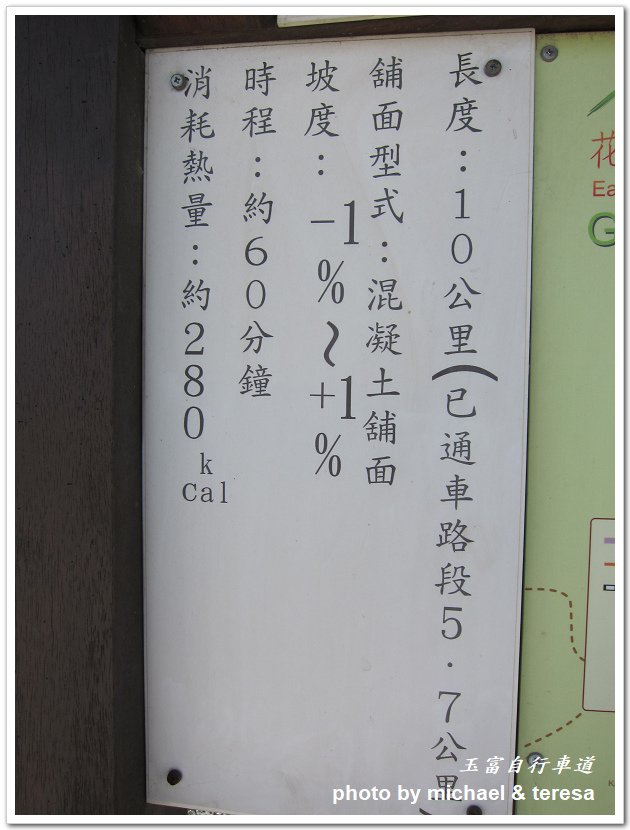 長度：10公里(已通車路段5.7公里)
舖面型式：混凝土舖面
坡度：-1%～+1%
時程：約60分鐘
消耗熱量：約280kCal
花
Ea
G
玉富自行車道
photo by michael & teresa